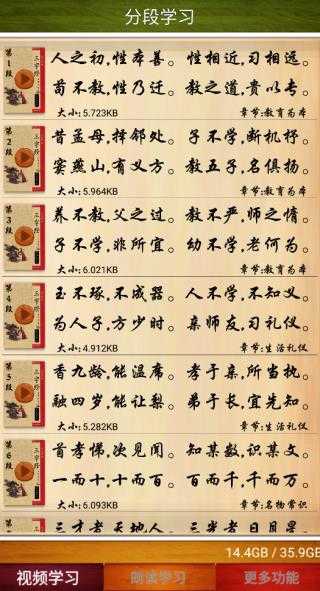 分段学习
第1段
三字经
人之初,性本善。 性相近,习相远。
苟不教,性乃迁。 教之道,贵以专。
大小:5.723KB 章节:教育为本
第2段
三字经
昔孟母,择邻处。 子不学,断机杼。
窦燕山,有义方。 教五子,名俱扬。
大小:5.964KB 章节:教育为本
第3段
三字经
养不教,父之过。 教不严,师之惰。
子不学,非所宜。 幼不学,老何为。
大小:6.021KB 章节:教育为本
第4段
三字经
玉不琢,不成器。 人不学,不知义。
为人子,方少时。 亲师友,习礼仪。
大小:4.912KB 章节:生活礼仪
第5段
三字经
香九龄,能温席。 孝于亲,所当执。
融四岁,能让梨。 弟于长,宜先知。
大小:5.282KB 章节:生活礼仪
第6段
三字经
首孝悌,次见闻。 知某数,识某文。
一而十,十而百。 百而千,千而万。
大小:6.093KB 章节:名物常识
第
三才者,天地人。 三光者,日月星。
14.4GB / 35.9GB
视频学习 朗读学习 更多功能